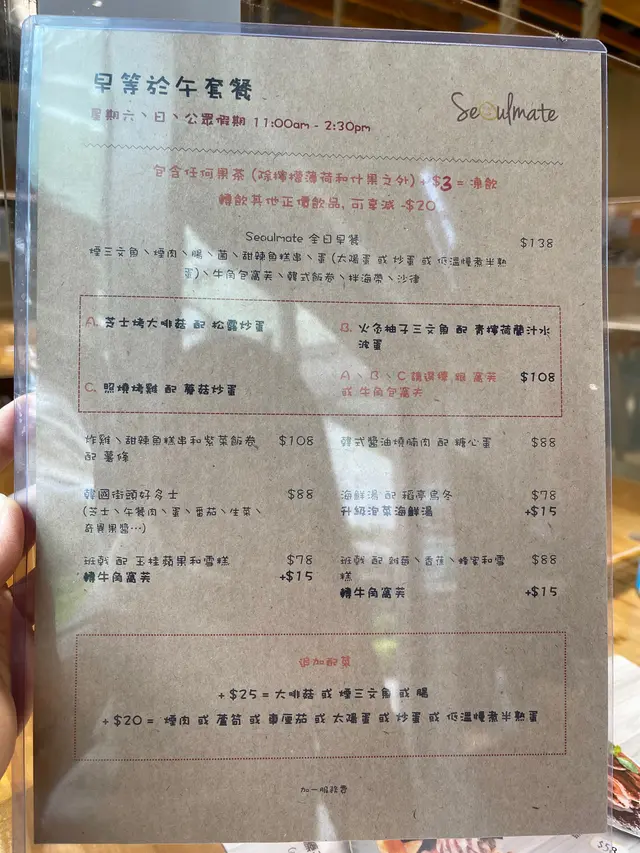 早等於午套餐
Seoulmate
星期六、日、公眾假期 11:00am - 2:30pm
包含任何果茶 (除檸檬薄荷和什果之外) +$3 = 漁飲
轉飲其他正價飲品, 可享減 -$20
Seoulmate 全日早餐 $138
煙三文魚、煙肉、腸、菌、甜辣魚糕串、蛋 (太陽蛋 或 炒蛋 或 低溫慢煮半熟
蛋)、牛角包窩芙、韓式飯卷、拌海帶、沙律
A. 芝士烤大啡菇 配 松露炒蛋
B. 火灸柚子三文魚 配 青檸荷蘭汁水
波蛋
C. 照燒烤雞 配 蘑菇炒蛋
A、B、C 請選擇 窩芙 $108
或 牛角包窩夫
炸雞、甜辣魚糕串和紫菜飯卷 $108
配 薯條
韓式醬油燒腩肉 配 糖心蛋 $88
韓國街頭好多士 $88
(芝士、午餐肉、蛋、番茄、生菜、
奇異果醬…)
海鮮湯 配 稻亭烏冬 $78
升級泡菜海鮮湯 +$15
班戟 配 玉桂蘋果和雪糕 $78
轉牛角窩芙 +$15
班戟 配 、香蕉、蜂蜜和雪 $88
糕
轉牛角窩芙 +$15
追加配菜
+ $25 = 大啡菇 或 煙三文魚 或 腸
+ $20 = 煙肉 或 蘆筍 或 車厘茄 或 太陽蛋 或 炒蛋 或 低溫慢煮半熟蛋
加一服務費
$58